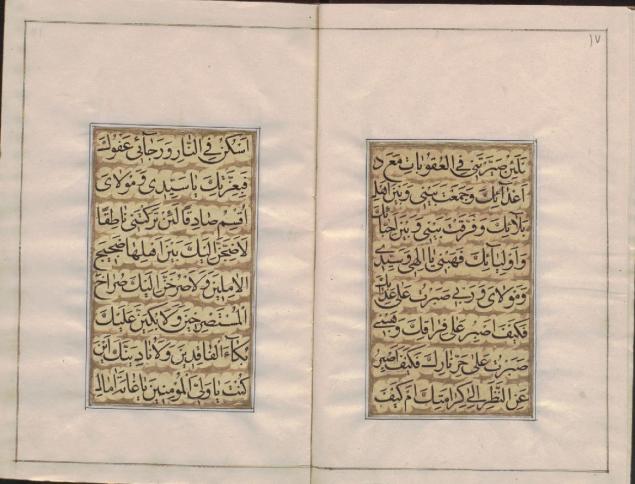 ١٧
تلئن صيرتني في العقوبات مع د
اعدائك وجمعت بيني وبين اهل
بلائك وفرقت بيني وبين احبائك
واوليائك فهبني يا الهي وسيدي
ومولاي وربي صبرت على عذابك
فكيف اصبر على فراقك وهبني
صبرت على حر نارك فكيف اصبر
عن النظر الى كرامتك ام كيف
اسكن في النار ورجائي عفوك
فبعزتك يا سيدي ومولاي
اقسم صادقا لئن تركتني ناطقا
لاضجن اليك بين اهلها ضجيج
الاملين ولاصرخن اليك صراخ
المستصرخين ولابكين عليك
بكاء الفاقدين ولانادينك اين
كنت يا ولي المؤمنين يا غاية امال